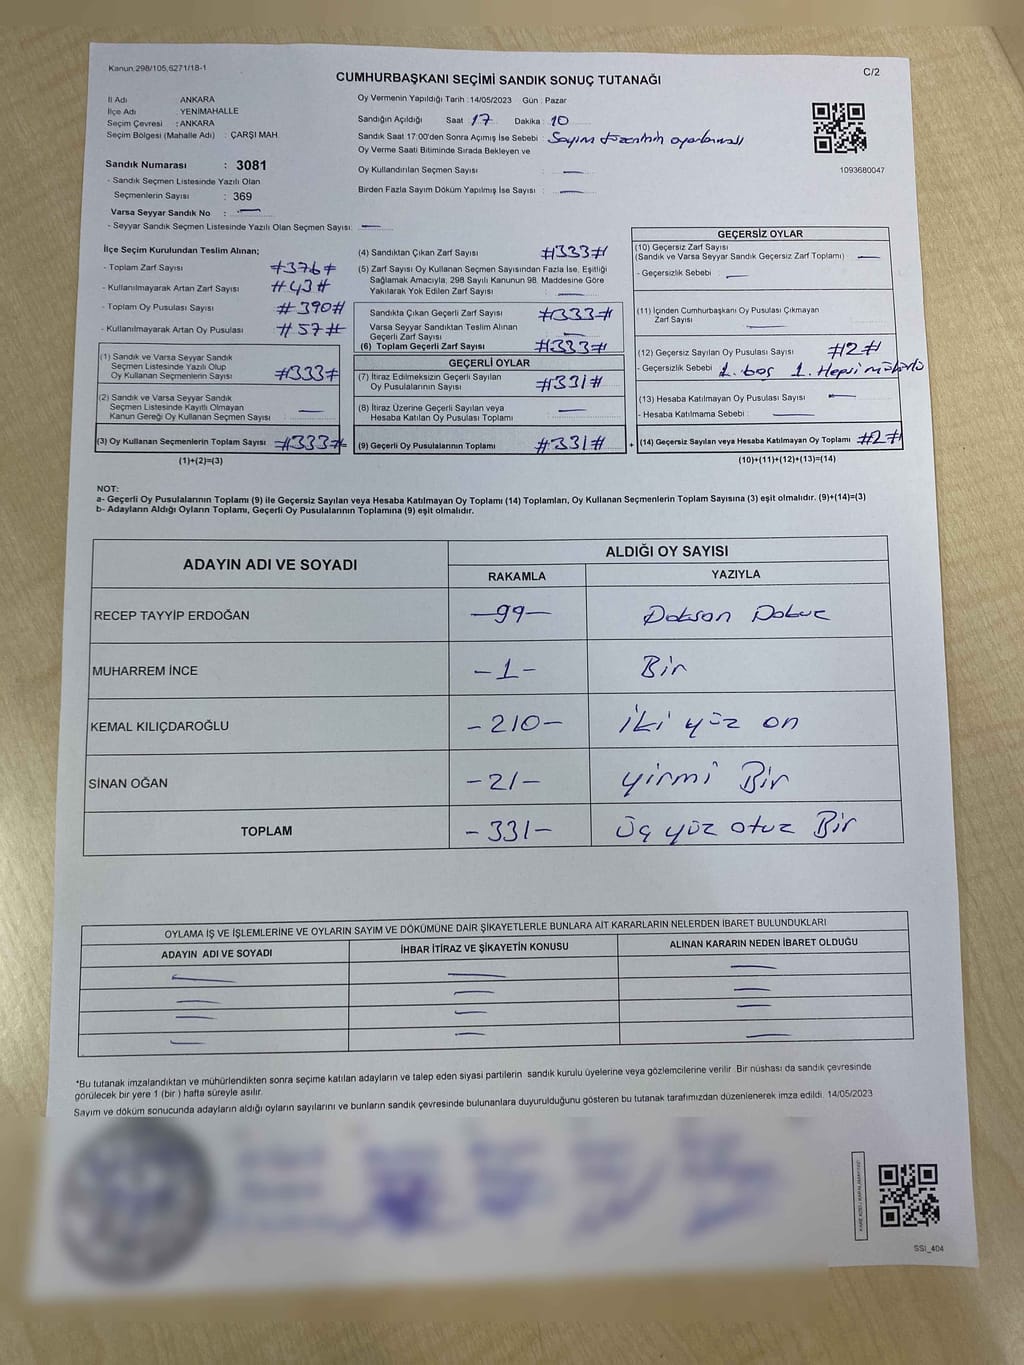 Kanun.298/105,6271/18-1
C/2
CUMHURBAŞKANI SEÇİMİ SANDIK SONUÇ TUTANAĞI
İl Adı : ANKARA
İlçe Adı : YENİMAHALLE
Seçim Çevresi : ANKARA
Seçim Bölgesi (Mahalle Adı) : ÇARŞI MAH.
Sandık Numarası : 3081
- Sandık Seçmen Listesinde Yazılı Olan
Seçmenlerin Sayısı : 369
Varsa Seyyar Sandık No : —
- Seyyar Sandık Seçmen Listesinde Yazılı Olan Seçmen Sayısı: —
Oy Vermenin Yapıldığı Tarih :14/05/2023 Gün : Pazar
Sandığın Açıldığı Saat 17 Dakika : 10
Sandık Saat 17:00'den Sonra Açımış İse Sebebi : Sayım
Oy Verme Saati Bitiminde Sırada Bekleyen ve
Oy Kullandırılan Seçmen Sayısı : —
Birden Fazla Sayım Döküm Yapılmış İse Sayısı : —
1093680047
İlçe Seçim Kurulundan Teslim Alınan;
- Toplam Zarf Sayısı #376#
- Kullanılmayarak Artan Zarf Sayısı #43#
- Toplam Oy Pusulası Sayısı #390#
- Kullanılmayarak Artan Oy Pusulası #57#
(1) Sandık ve Varsa Seyyar Sandık
Seçmen Listesinde Yazılı Olup
Oy Kullanan Seçmenlerin Sayısı #333#
(2) Sandık ve Varsa Seyyar Sandık
Seçmen Listesinde Kayıtlı Olmayan
Kanun Gereği Oy Kullanan Seçmen Sayısı : —
(3) Oy Kullanan Seçmenlerin Toplam Sayısı #333#
(1)+(2)=(3)
(4) Sandıktan Çıkan Zarf Sayısı #333#
(5) Zarf Sayısı Oy Kullanan Seçmen Sayısından Fazla İse, Eşitliği
Sağlamak Amacıyla, 298 Sayılı Kanunun 98. Maddesine Göre
Yakılarak Yok Edilen Zarf Sayısı : —
Sandıkta Çıkan Geçerli Zarf Sayısı #333#
Varsa Seyyar Sandıktan Teslim Alınan
Geçerli Zarf Sayısı —
(6) Toplam Geçerli Zarf Sayısı #333#
GEÇERLİ OYLAR
(7) İtiraz Edilmeksizin Geçerli Sayılan
Oy Pusulalarının Sayısı : #331#
(8) İtiraz Üzerine Geçerli Sayılan veya
Hesaba Katılan Oy Pusulası Toplamı —
(9) Geçerli Oy Pusulalarının Toplamı #331# +
GEÇERSİZ OYLAR
(10) Geçersiz Zarf Sayısı
(Sandık ve Varsa Seyyar Sandık Geçersiz Zarf Toplamı) —
- Geçersizlik Sebebi : —
(11) İçinden Cumhurbaşkanı Oy Pusulası Çıkmayan
Zarf Sayısı —
(12) Geçersiz Sayılan Oy Pusulası Sayısı #2#
- Geçersizlik Sebebi : 1. boş 1. Hepsi mühürlü
(13) Hesaba Katılmayan Oy Pusulası Sayısı : —
- Hesaba Katılmama Sebebi : —
(14) Geçersiz Sayılan veya Hesaba Katılmayan Oy Toplamı #2#
(10)+(11)+(12)+(13)=(14)
NOT:
a- Geçerli Oy Pusulalarının Toplamı (9) ile Geçersiz Sayılan veya Hesaba Katılmayan Oy Toplamı (14) Toplamları, Oy Kullanan Seçmenlerin Toplam Sayısına (3) eşit olmalıdır. (9)+(14)=(3)
b- Adayların Aldığı Oyların Toplamı, Geçerli Oy Pusulalarının Toplamına (9) eşit olmalıdır.
ADAYIN ADI VE SOYADI
ALDIĞI OY SAYISI
RAKAMLA YAZIYLA
RECEP TAYYİP ERDOĞAN —99— Doksan Dokuz
MUHARREM İNCE —1— Bir
KEMAL KILIÇDAROĞLU —210— iki yüz on
SİNAN OĞAN —21— yirmi Bir
TOPLAM —331— üç yüz otuz Bir
OYLAMA İŞ VE İŞLEMLERİNE VE OYLARIN SAYIM VE DÖKÜMÜNE DAİR ŞİKAYETLERLE BUNLARA AİT KARARLARIN NELERDEN İBARET BULUNDUKLARI
ADAYIN ADI VE SOYADI İHBAR İTİRAZ VE ŞİKAYETİN KONUSU ALINAN KARARIN NEDEN İBARET OLDUĞU
— — —
— — —
— — —
— — —
*Bu tutanak imzalandıktan ve mühürlendikten sonra seçime katılan adayların ve talep eden siyasi partilerin sandık kurulu üyelerine veya gözlemcilerine verilir. Bir nüshası da sandık çevresinde
görülecek bir yere 1 (bir ) hafta süreyle asılır.
Sayım ve döküm sonucunda adayların aldığı oyların sayılarını ve bunların sandık çevresinde bulunanlara duyurulduğunu gösteren bu tutanak tarafımızdan düzenlenerek imza edildi. 14/05/2023
KARE KODU KARALAMAYINIZ!
SSİ_404